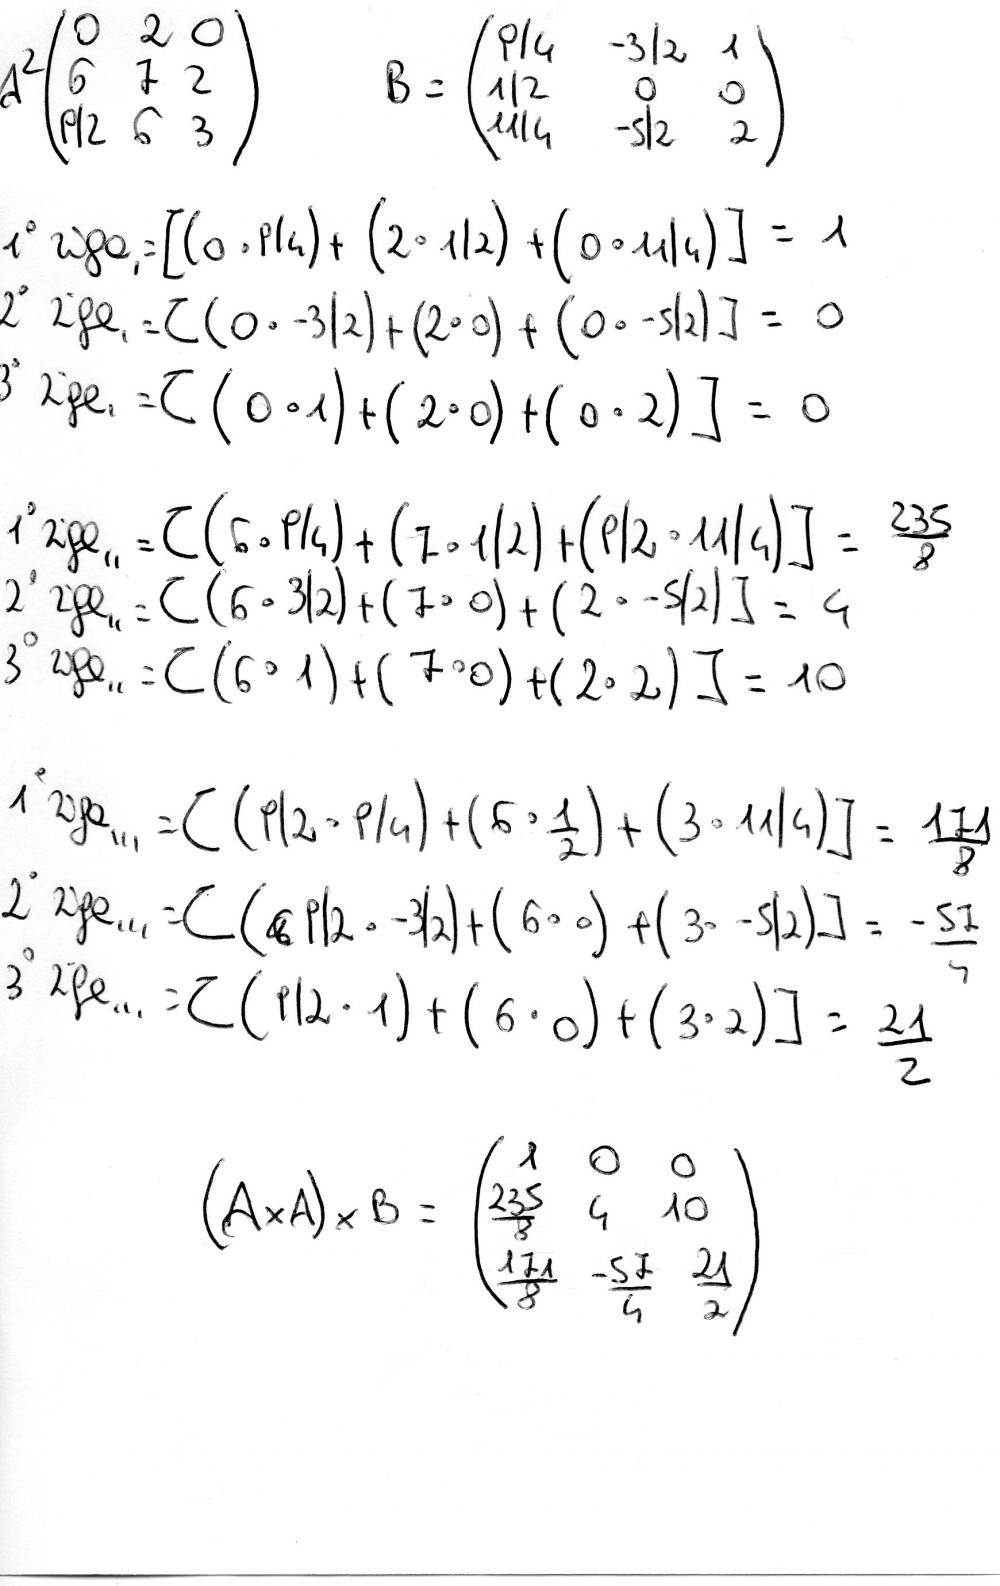 A² (0 2 0
6 7 2
9/2 6 3) B = (9/4 -3/2 1
1/2 0 0
11/4 -5/2 2)
1° riga, = [(0 · 9/4) + (2 · 1/2) + (0 · 11/4)] = 1
2° riga, = [(0 · -3/2) + (2 · 0) + (0 · -5/2)] = 0
3° riga, = [(0 · 1) + (2 · 0) + (0 · 2)] = 0
1° riga,, = [(6 · 9/4) + (7 · 1/2) + (9/2 · 11/4)] = 235/8
2° riga,, = [(6 · 3/2) + (7 · 0) + (2 · -5/2)] = 4
3° riga,, = [(6 · 1) + (7 · 0) + (2 · 2)] = 10
1° riga,,, = [(9/2 · 9/4) + (6 · 1/2) + (3 · 11/4)] = 171/8
2° riga,,, = [(9/2 · -3/2) + (6 · 0) + (3 · -5/2)] = -57/4
3° riga,,, = [(9/2 · 1) + (6 · 0) + (3 · 2)] = 21/2
(A×A) × B = (1 0 0
235/8 4 10
171/8 -57/4 21/2)